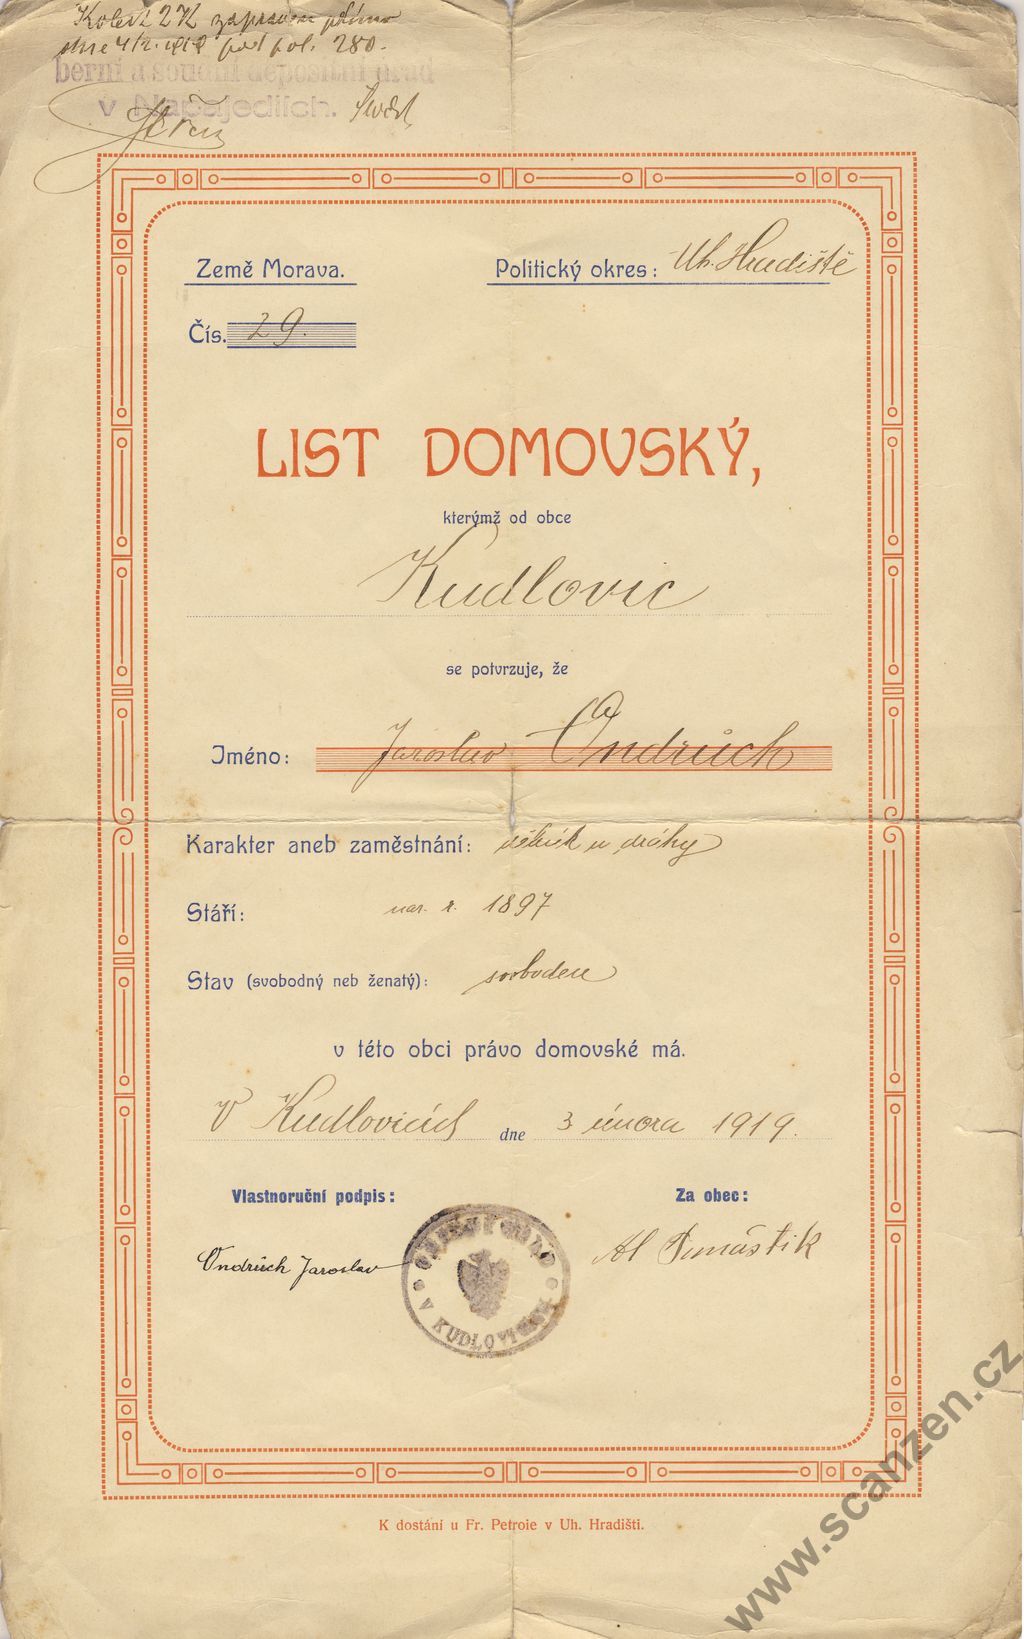 Kolek 2 K zapraven přímo
dne 4/2. 1919 pod pol. 280.
berní a soudní depositní úřad
v Napajedlích.
Země Morava.
Politický okres: Uh. Hradiště
Čís. 29.
LIST DOMOVSKÝ,
kterýmž od obce
Kudlovic
se potvrzuje, že
Jméno: Jaroslav Ondrůch
Karakter aneb zaměstnání: dělník u dráhy
Stáří: nar. r. 1897
Stav (svobodný neb ženatý): svoboden
v této obci právo domovské má.
V Kudlovicích dne 3 února 1919.
Vlastnoruční podpis:
Za obec:
Ondrůch Jaroslav
Al Tomáštík
V KUDLOVICÍCH
K dostání u Fr. Petroie v Uh. Hradišti.
www.scanzen.cz